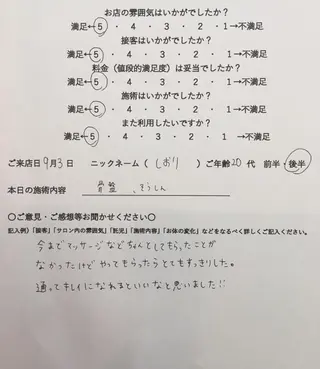 お店の雰囲気はいかがでしたか?
満足←5・4・3・2・1→不満足
接客はいかがでしたか?
満足←5・4・3・2・1→不満足
料金(値段的満足度)は妥当でしたか?
満足←5・4・3・2・1→不満足
施術はいかがでしたか?
満足←5・4・3・2・1→不満足
また利用したいですか?
満足←5・4・3・2・1→不満足
ご来店日9月3日 ニックネーム(しおり)ご年齢20代 前半・後半
本日の施術内容 骨盤、ぜんしん
○ご意見・ご感想等お聞かせください○
記入例)「接客」「サロン内の雰囲気」「託児」「施術内容」「お体の変化」などをなるべく詳しくご記入ください。
今までマッサージなどちゃんとしてもらったことが
なかったけどやってもらったらとてもすっきりした。
通ってキレイになれるといいなと思いました!!